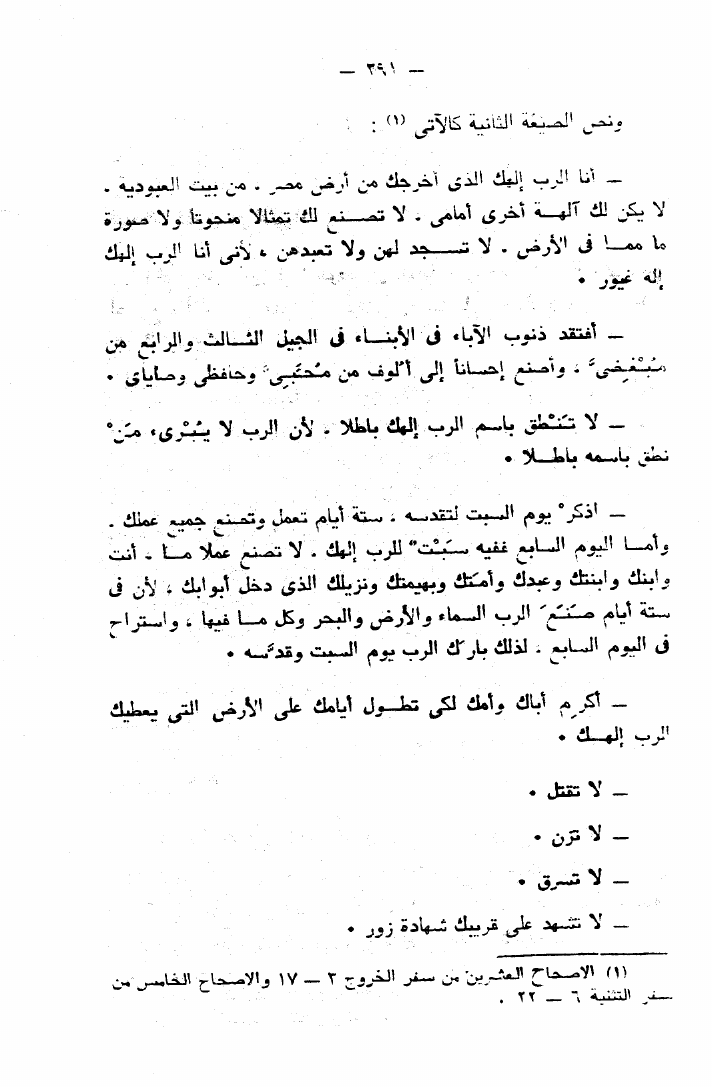 — ٣٩١ —
ونص الصيغة الثانية كالآتى (١) :
— أنا الرب إلهك الذى أخرجك من أرض مصر . من بيت العبودية .
لا يكن لك آلهـة أخرى أمامى . لا تصـنع لك تمثالا منحوتاً ولا صورة
ما ممـا فى الأرض . لا تسـجد لهن ولا تعبدهن ، لأنى أنا الرب إلهك
إله غيور .
— أفتقد ذنوب الآباء فى الأبنـاء فى الجيل الثـالث والرابع من
مُبْغِضىَّ ، وأصنع إحساناً إلى ألوف من مُحبِّىَّ وحافظى وصاياى .
— لا تَنْطق باسم الرب إلهك باطلا . لأن الرب لا يُبْرىء مَنْ
نطق باسمه باطـلا .
— اذكرْ يوم السبت لتقدسه ، ستة أيام تعمل وتصنع جميع عملك .
وأمـا اليوم السابع ففيه سَبْتٌ للرب إلهك . لا تصنع عملا مـا . أنت
وابنك وابنتك وعبدك وأمتك وبهيمتك ونزيلك الذى دخل أبوابك ، لأن فى
ستة أيام صَنَعَ الرب السماء والأرض والبحر وكل مـا فيها ، واستراح
فى اليوم السابع . لذلك بارك الرب يوم السبت وقدَّسه .
— أكرِم أباك وأمك لكى تطـول أيامك على الأرض التى يعطيك
الرب إلهـك .
— لا تقتل .
— لا تزن .
— لا تسرق .
— لا تشهد على قريبك شهادة زور .
(١) الاصحاح العشرين من سفر الخروج ٣ — ١٧ والاصحاح الخامس من
سفر التثنية ٦ — ٢٢ .